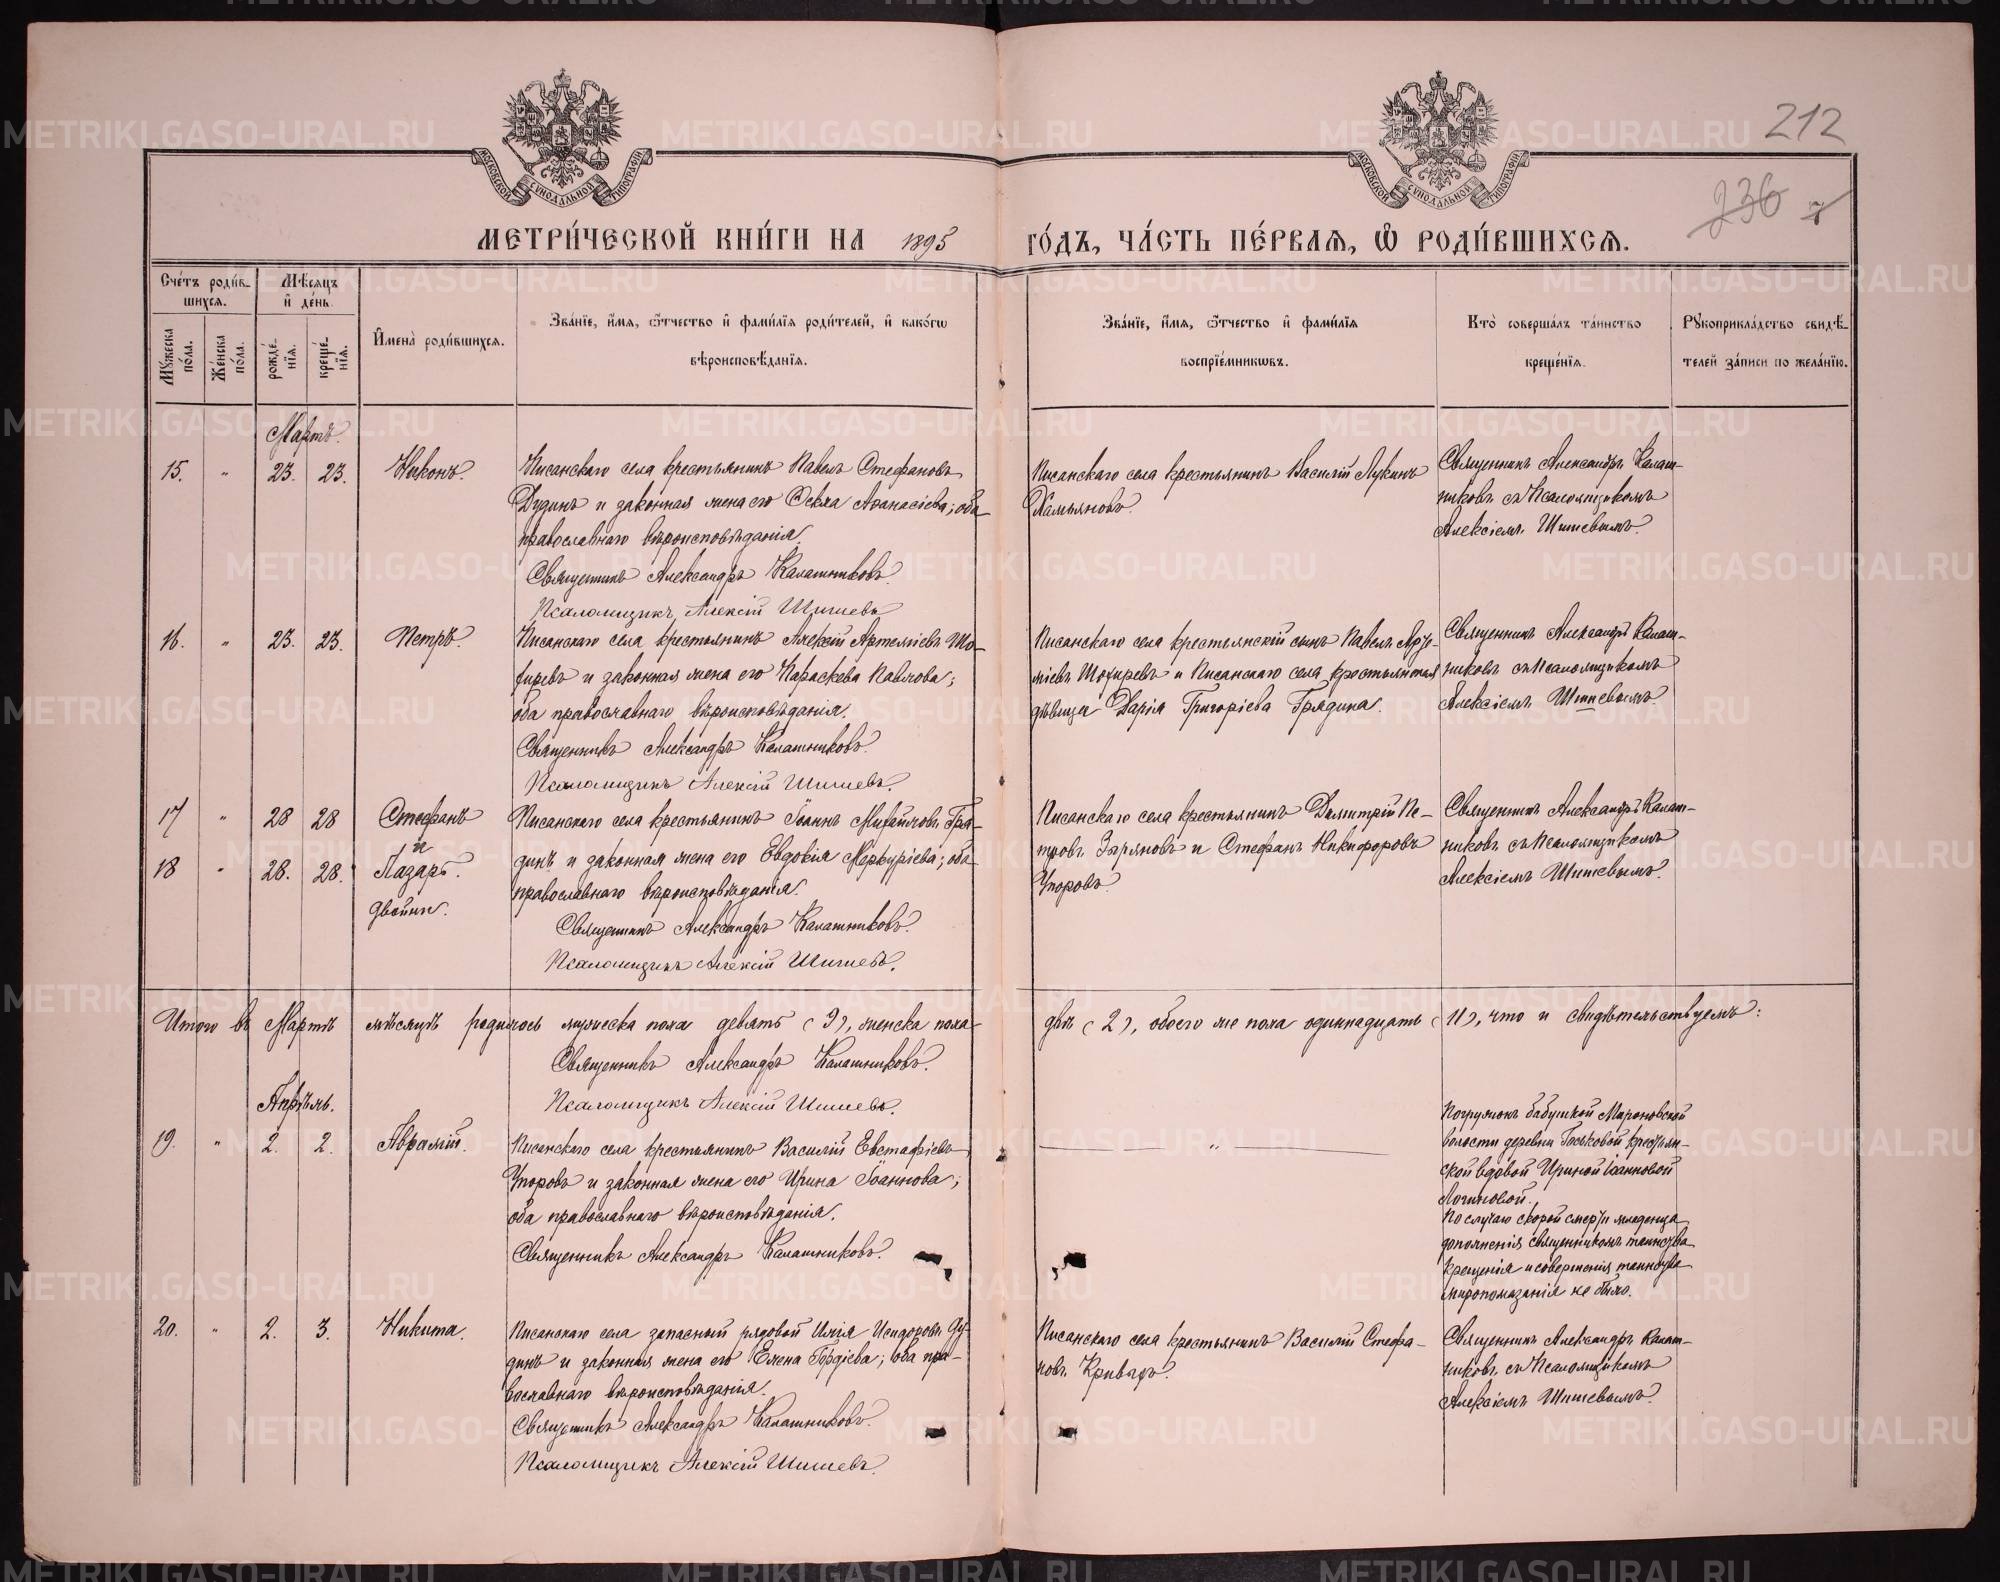 212
236
7
МОСКОВСКОЙ СУНОДАЛЬНОЙ ТИПОГРАФІИ
МОСКОВСКОЙ СУНОДАЛЬНОЙ ТИПОГРАФІИ
МЕТРИ́ЧЕСКОЙ КНИ́ГИ НА 1895 ГО́ДЪ, ЧА́СТЬ ПЕ́РВАѦ, Ѽ РОДИ́ВШИХСѦ.
Сче́тъ роди́в-
шихсѧ.
Мѣ́сѧцъ
и҆ де́нь.
Мꙋ́жеска по́ла.
Же́нска по́ла.
рожде́нїѧ.
креще́нїѧ.
И҆мена̀ роди́вшихсѧ.
Зва́нїе, и҆́мѧ, ѻ҆́тчество и҆ фами́лїѧ роди́телей, и҆ како́гѡ
вѣроисповѣ́данїѧ.
Зва́нїе, и҆́мѧ, ѻ҆́тчество и҆ фами́лїѧ
воспрїе́мникѡвъ.
Кто̀ соверша́лъ та́инство
креще́нїѧ.
Рꙋкоприкла́дство свидѣ́-
телей за́писи по жела́нїю.
Мартъ.
15. " 23. 23. Никонъ.
Писанскаго села крестьянинъ Павелъ Стефановъ
Дудинъ и законная жена его Ѳекла Аѳанасіева; оба
православнаго вѣроисповѣданія.
Священникъ Александръ Калашниковъ.
Псаломщикъ Алексій Шишевъ
Писанскаго села крестьянинъ Василій Лукинъ
Хамьяновъ.
Священникъ Александръ Калаш-
никовъ съ Псаломщикомъ
Алексіемъ Шишевымъ.
16. " 23. 23. Петръ.
Писанскаго села крестьянинъ Алексій Артеміевъ Шо-
хиревъ и законная жена его Параскева Павлова;
оба православнаго вѣроисповѣданія.
Священникъ Александръ Калашниковъ.
Псаломщикъ Алексій Шишевъ.
Писанскаго села крестьянскій сынъ Павелъ Арте-
міевъ Шохиревъ и Писанскаго села крестьянская
дѣвица Дарія Григоріева Грядина.
Священникъ Александръ Калаш-
никовъ съ Псаломщикомъ
Алексіемъ Шишевымъ.
17 " 28 28 Стефанъ
и
18 " 28. 28. Лазарь.
двойни.
Писанскаго села крестьянинъ Іоаннъ Михайловъ Гря-
динъ и законная жена его Евдокія Меркуріева; оба
православнаго вѣроисповѣданія.
Священникъ Александръ Калашниковъ.
Псаломщикъ Алексій Шишевъ.
Писанскаго села крестьянинъ Димитрій Пе-
тровъ Зыряновъ и Стефанъ Никифоровъ
Упоровъ.
Священникъ Александръ Калаш-
никовъ съ Псаломщикомъ
Алексіемъ Шишевымъ.
Итого въ Мартѣ мѣсяцѣ родилось мужеска пола девять (9), женска пола двѣ (2), обоего же пола одиннадцать (11), что и свидѣтельствуемъ:
Священникъ Александръ Калашниковъ.
Псаломщикъ Алексій Шишевъ.
Апрѣль.
19. " 2. 2. Аврамій.
Писанскаго села крестьянинъ Василій Евстафіевъ
Упоровъ и законная жена его Ирина Іоаннова;
оба православнаго вѣроисповѣданія.
Священникъ Александръ Калашниковъ.
"
Погружонъ бабушкой Мироновской
волости деревни крестьян-
ской вдовой Ириной Іоанновой
Логиновой.
По случаю скорой смерти младенца
дополненія священникомъ таинства
крещенія и совершенія таинства
миропомазанія не было.
20. " 2. 3. Никита.
Писанскаго села запасный рядовой Илія Исидоровъ Ду-
динъ и законная жена его Елена Гордіева; оба пра-
вославнаго вѣроисповѣданія.
Священникъ Александръ Калашниковъ.
Псаломщикъ Алексій Шишевъ.
Писанскаго села крестьянинъ Василій Стефа-
новъ Кривыхъ.
Священникъ Александръ Калаш-
никовъ съ Псаломщикомъ
Алексіемъ Шишевымъ.
METRIKI.GASO-URAL.RU